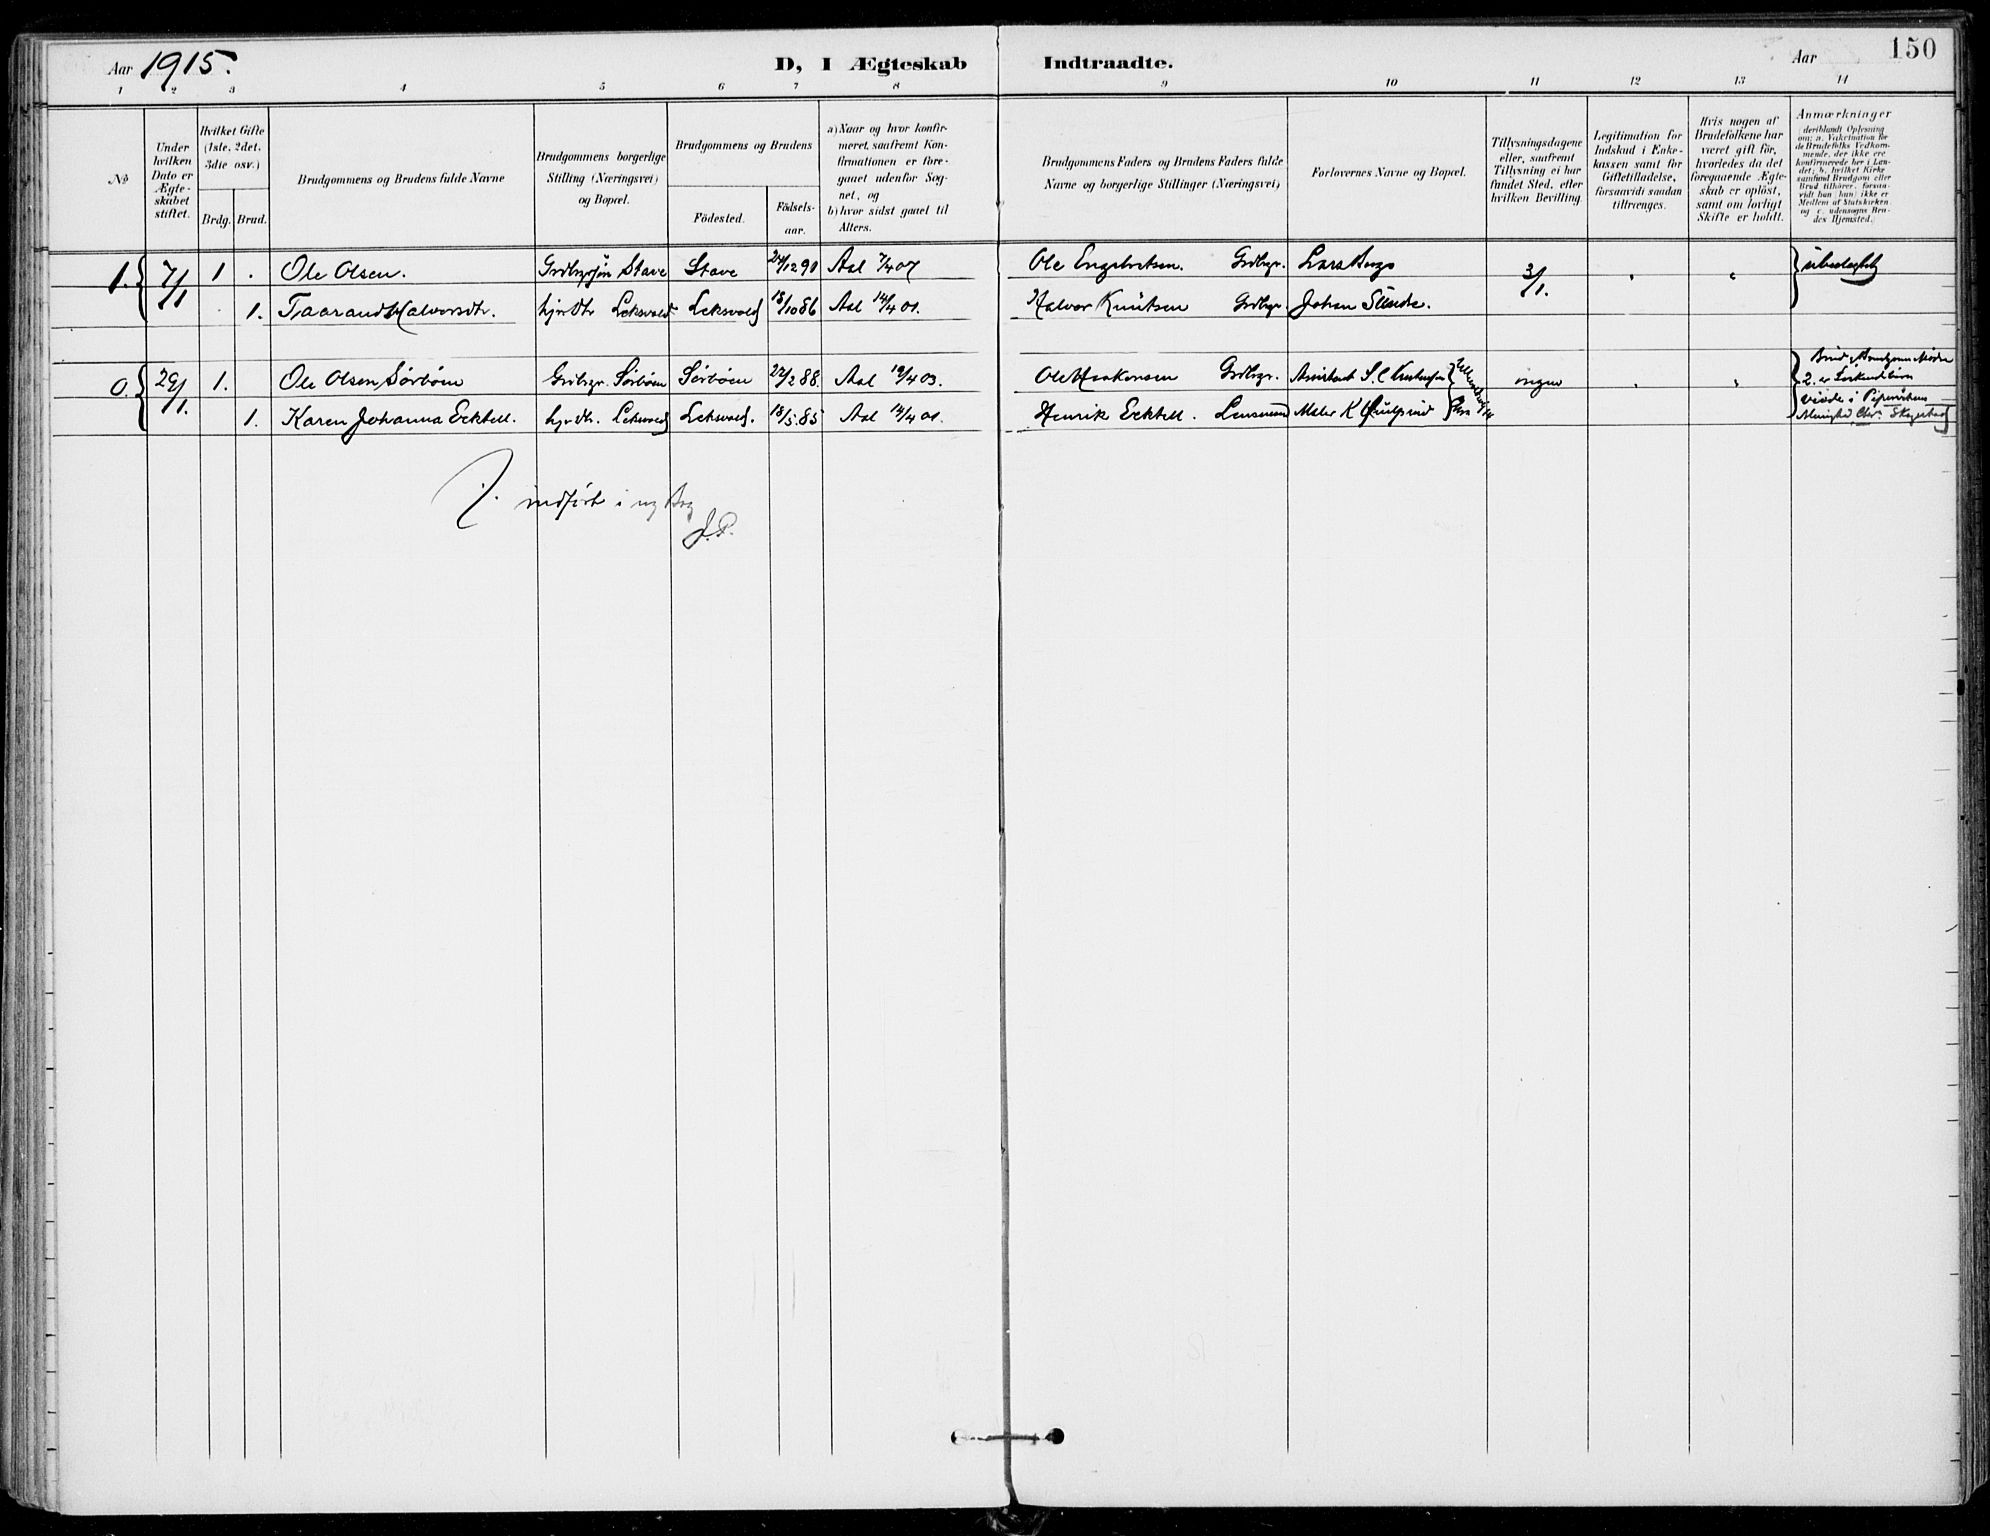 Aar 1915. D, I Ægteskab Indtraadte. Aar 150
1 2 3 4 5 6 7 8 9 10 11 12 13 14
No
Under hvilken Dato er Ægteskabet stiftet.
Hvilket Gifte (1ste, 2det, 3die osv.)
Brdg. Brud.
Brudgommens og Brudens fulde Navne
Brudgommens borgerlige Stilling (Næringsvei) og Bopæl.
Brudgommens og Brudens
Födested.
Födsels-aar.
a) Naar og hvor konfirmeret, saafremt Konfirmationen er foregaaet udenfor Sognet, og
b) hvor sidst gaaet til Alters.
Brudgommens Faders og Brudens Faders fulde Navne og borgerlige Stillinger (Næringsvei)
Forlovernes Navne og Bopæl.
Tillysningsdagene eller, saafremt Tillysning ei har fundet Sted, efter hvilken Bevilling.
Legitimation for Indskud i Enkekassen samt for Giftetilladelse, forsaavidt saadan tiltrænges.
Hvis nogen af Brudefolkene har været gift før, hvorledes da det foregaaende Ægteskab er oplöst, samt om lovligt Skifte er holdt.
Anmærkninger
(deriblandt Oplysning om: a. Vakcination for de Brudefolks Vedkommende, der ikke ere konfirmerede her i Landet; b. hvilket Kirkesamfund Brudgom eller Brud tilhörer, forsaavidt han (hun) ikke er Medlem af Statskirken og c. udensogns Brudes Hjemsted.)
1. 7/1 1 . Ole Olsen. Stave Stave 24/12 90 Aal 7/4 07 Ole Engebretsen. Grdbgr. Lars Berg 3/1. " "
1. Taarand Halvorsdtr. hjv Dtr Leksvold Leksvold 18/10 86 Aal 14/4 01. Halvor Knutsen Grdbgr. Johan Sundre.
0. 29/1. 1. Ole Olsen Sørbøen Grdbgr. Sørbøen Sørbøen 22/2 88. Aal 19/4 03. Ole Haakonsen Grdbgr. ingen " "
1. Karen Johanna Eckhell. hjv dtr. Leksvold Leksvold. 18/5 85 Aal 14/4 01. Henrik Eckhell. Lensmand Maler K
indført i ny Bog
J.P.